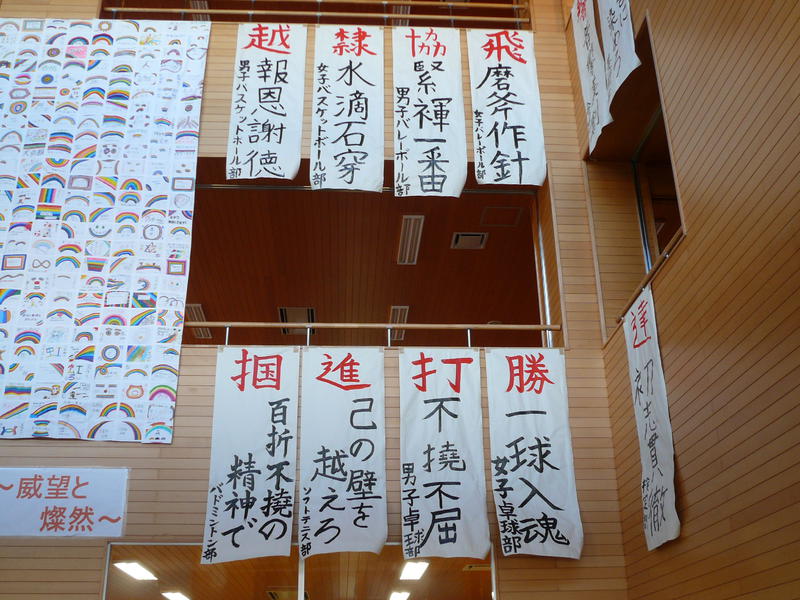 飛
磨斧作針
女子バレーボール部
協
緊褌一番
男子バレーボール部
隸
水滴石穿
女子バスケットボール部
越
報恩謝徳
男子バスケットボール部
勝
一球入魂
女子卓球部
打
不撓不屈
男子卓球部
進
己の壁を
越えろ
ソフトテニス部
掴
百折不撓の
精神で
バドミントン部
達
初志貫徹
～威望と
燦然～